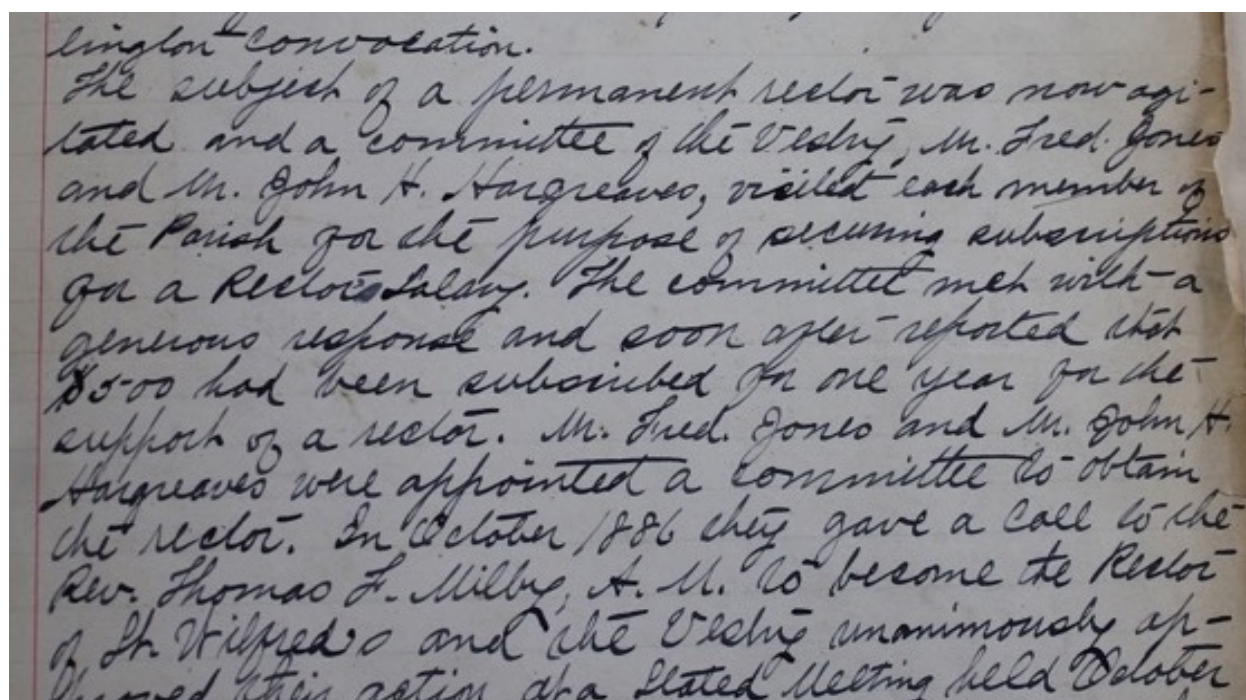 lington convocation.
The subject of a permanent rector was now agi-
tated and a committee of the Vestry, Mr. Fred. Jones
and Mr. John H. Hargreaves, visited each member of
the Parish for the purpose of securing subscriptions
for a Rector's Salary. The committee met with a
generous response and soon after reported that
$500 had been subscribed for one year for the
support of a rector. Mr. Fred. Jones and Mr. John H.
Hargreaves were appointed a committee to obtain
the rector. In October 1886 they gave a call to the
Rev. Thomas F. Milby, A. M. to become the Rector
of St. Wilfred's and the Vestry unanimously ap-
proved their action at a Stated Meeting held October